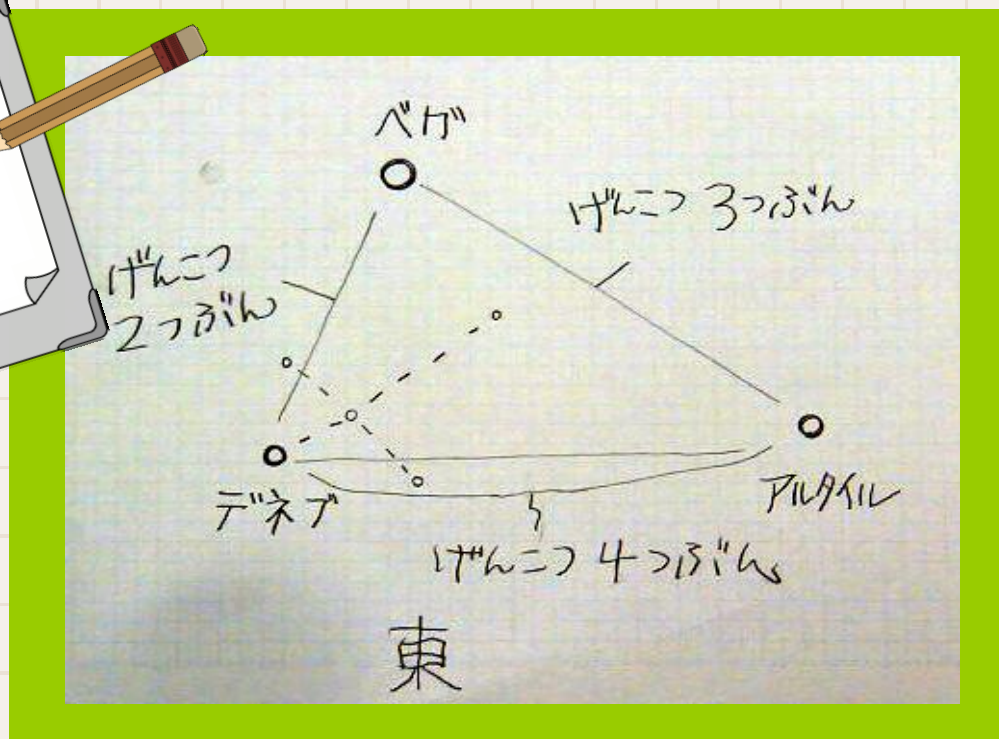 ベガ
げんこつ 3つぶん
げんこつ
2つぶん
デネブ
アルタイル
げんこつ 4つぶん
東